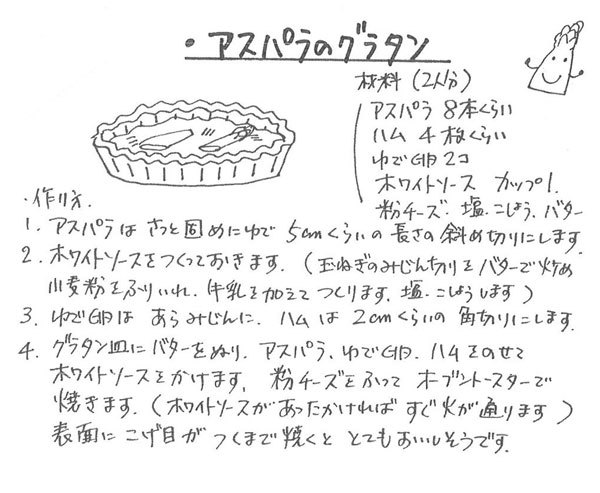 ・アスパラのグラタン
材料(2人分)
アスパラ 8本くらい
ハム 4枚くらい
ゆで卵 2コ
ホワイトソース カップ1.
粉チーズ. 塩. こしょう. バター
・作り方.
1. アスパラは さっと固めにゆで 5cmくらいの長さの斜め切りにします.
2. ホワイトソースをつくっておきます. (玉ねぎのみじん切りをバターで炒め
小麦粉をふりいれ. 牛乳を加えて つくります. 塩. こしょうします)
3. ゆで卵は あらみじんに. ハムは 2cmくらいの 角切りにします.
4. グラタン皿にバターをぬり. アスパラ. ゆで卵. ハムをのせて
ホワイトソースをかけます. 粉チーズをふって オーブントースターで
焼きます. (ホワイトソースがあったかければ すぐ火が通ります)
表面に こげ目が つくまで焼くと とてもおいしそうです.